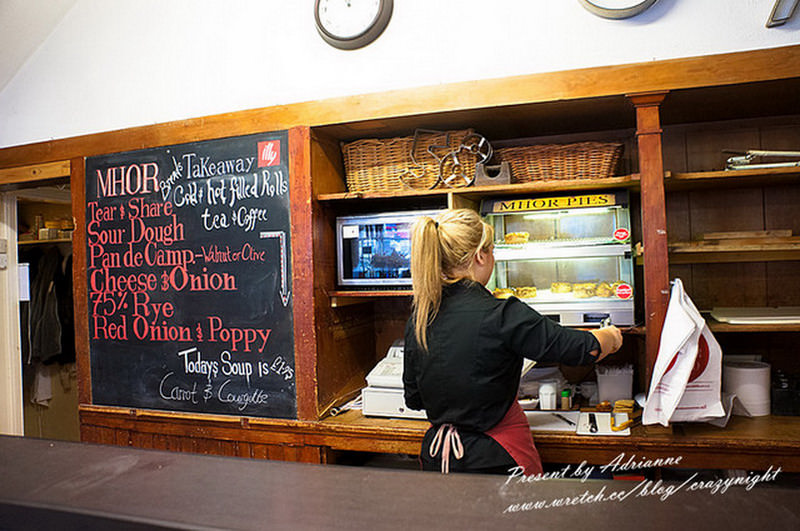 MHOR Bread
Takeaway
illy
Cold & hot filled Rolls
tea & Coffee
Tear & Share
Sour Dough
Pan de Camp.-Walnut or Olive
Cheese & Onion
75% Rye
Red Onion & Poppy
Todays Soup is
Carrot & Courgette
MHOR PIES
Present by Adrianne
www.wretch.cc/blog/crazynight